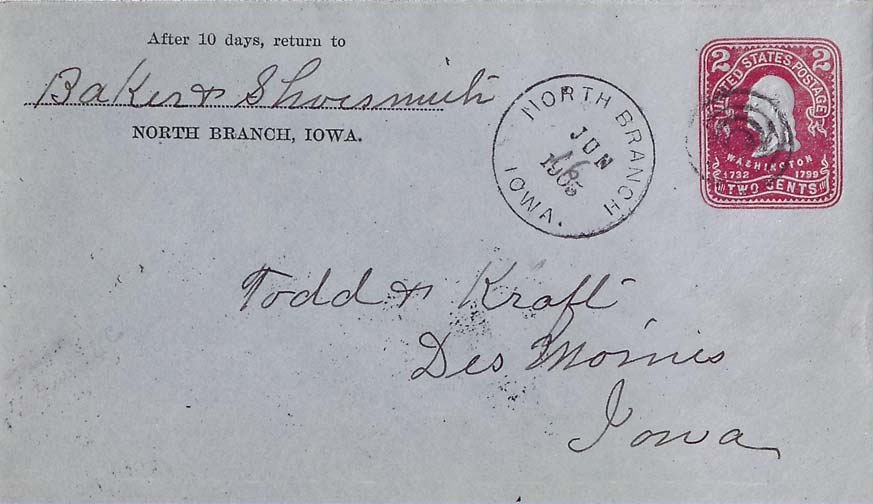 After 10 days, return to
Baker & Shoesmith
NORTH BRANCH, IOWA.
NORTH BRANCH
JUN
16
1905
IOWA.
2 2
UNITED STATES POSTAGE
WASHINGTON
1732 1799
TWO CENTS
Todd & Kraft
Des Moines
Iowa